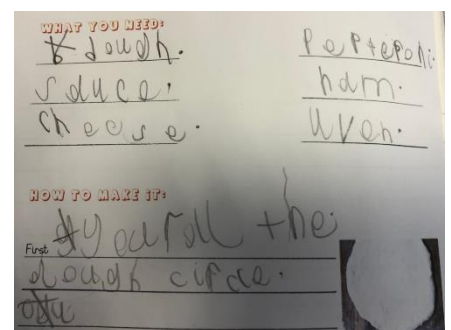 WHAT YOU NEED:
dough.
sauce.
cheese.
Pepteponi.
ham.
uven.
HOW TO MAKE IT:
First you roll the
dough circle.